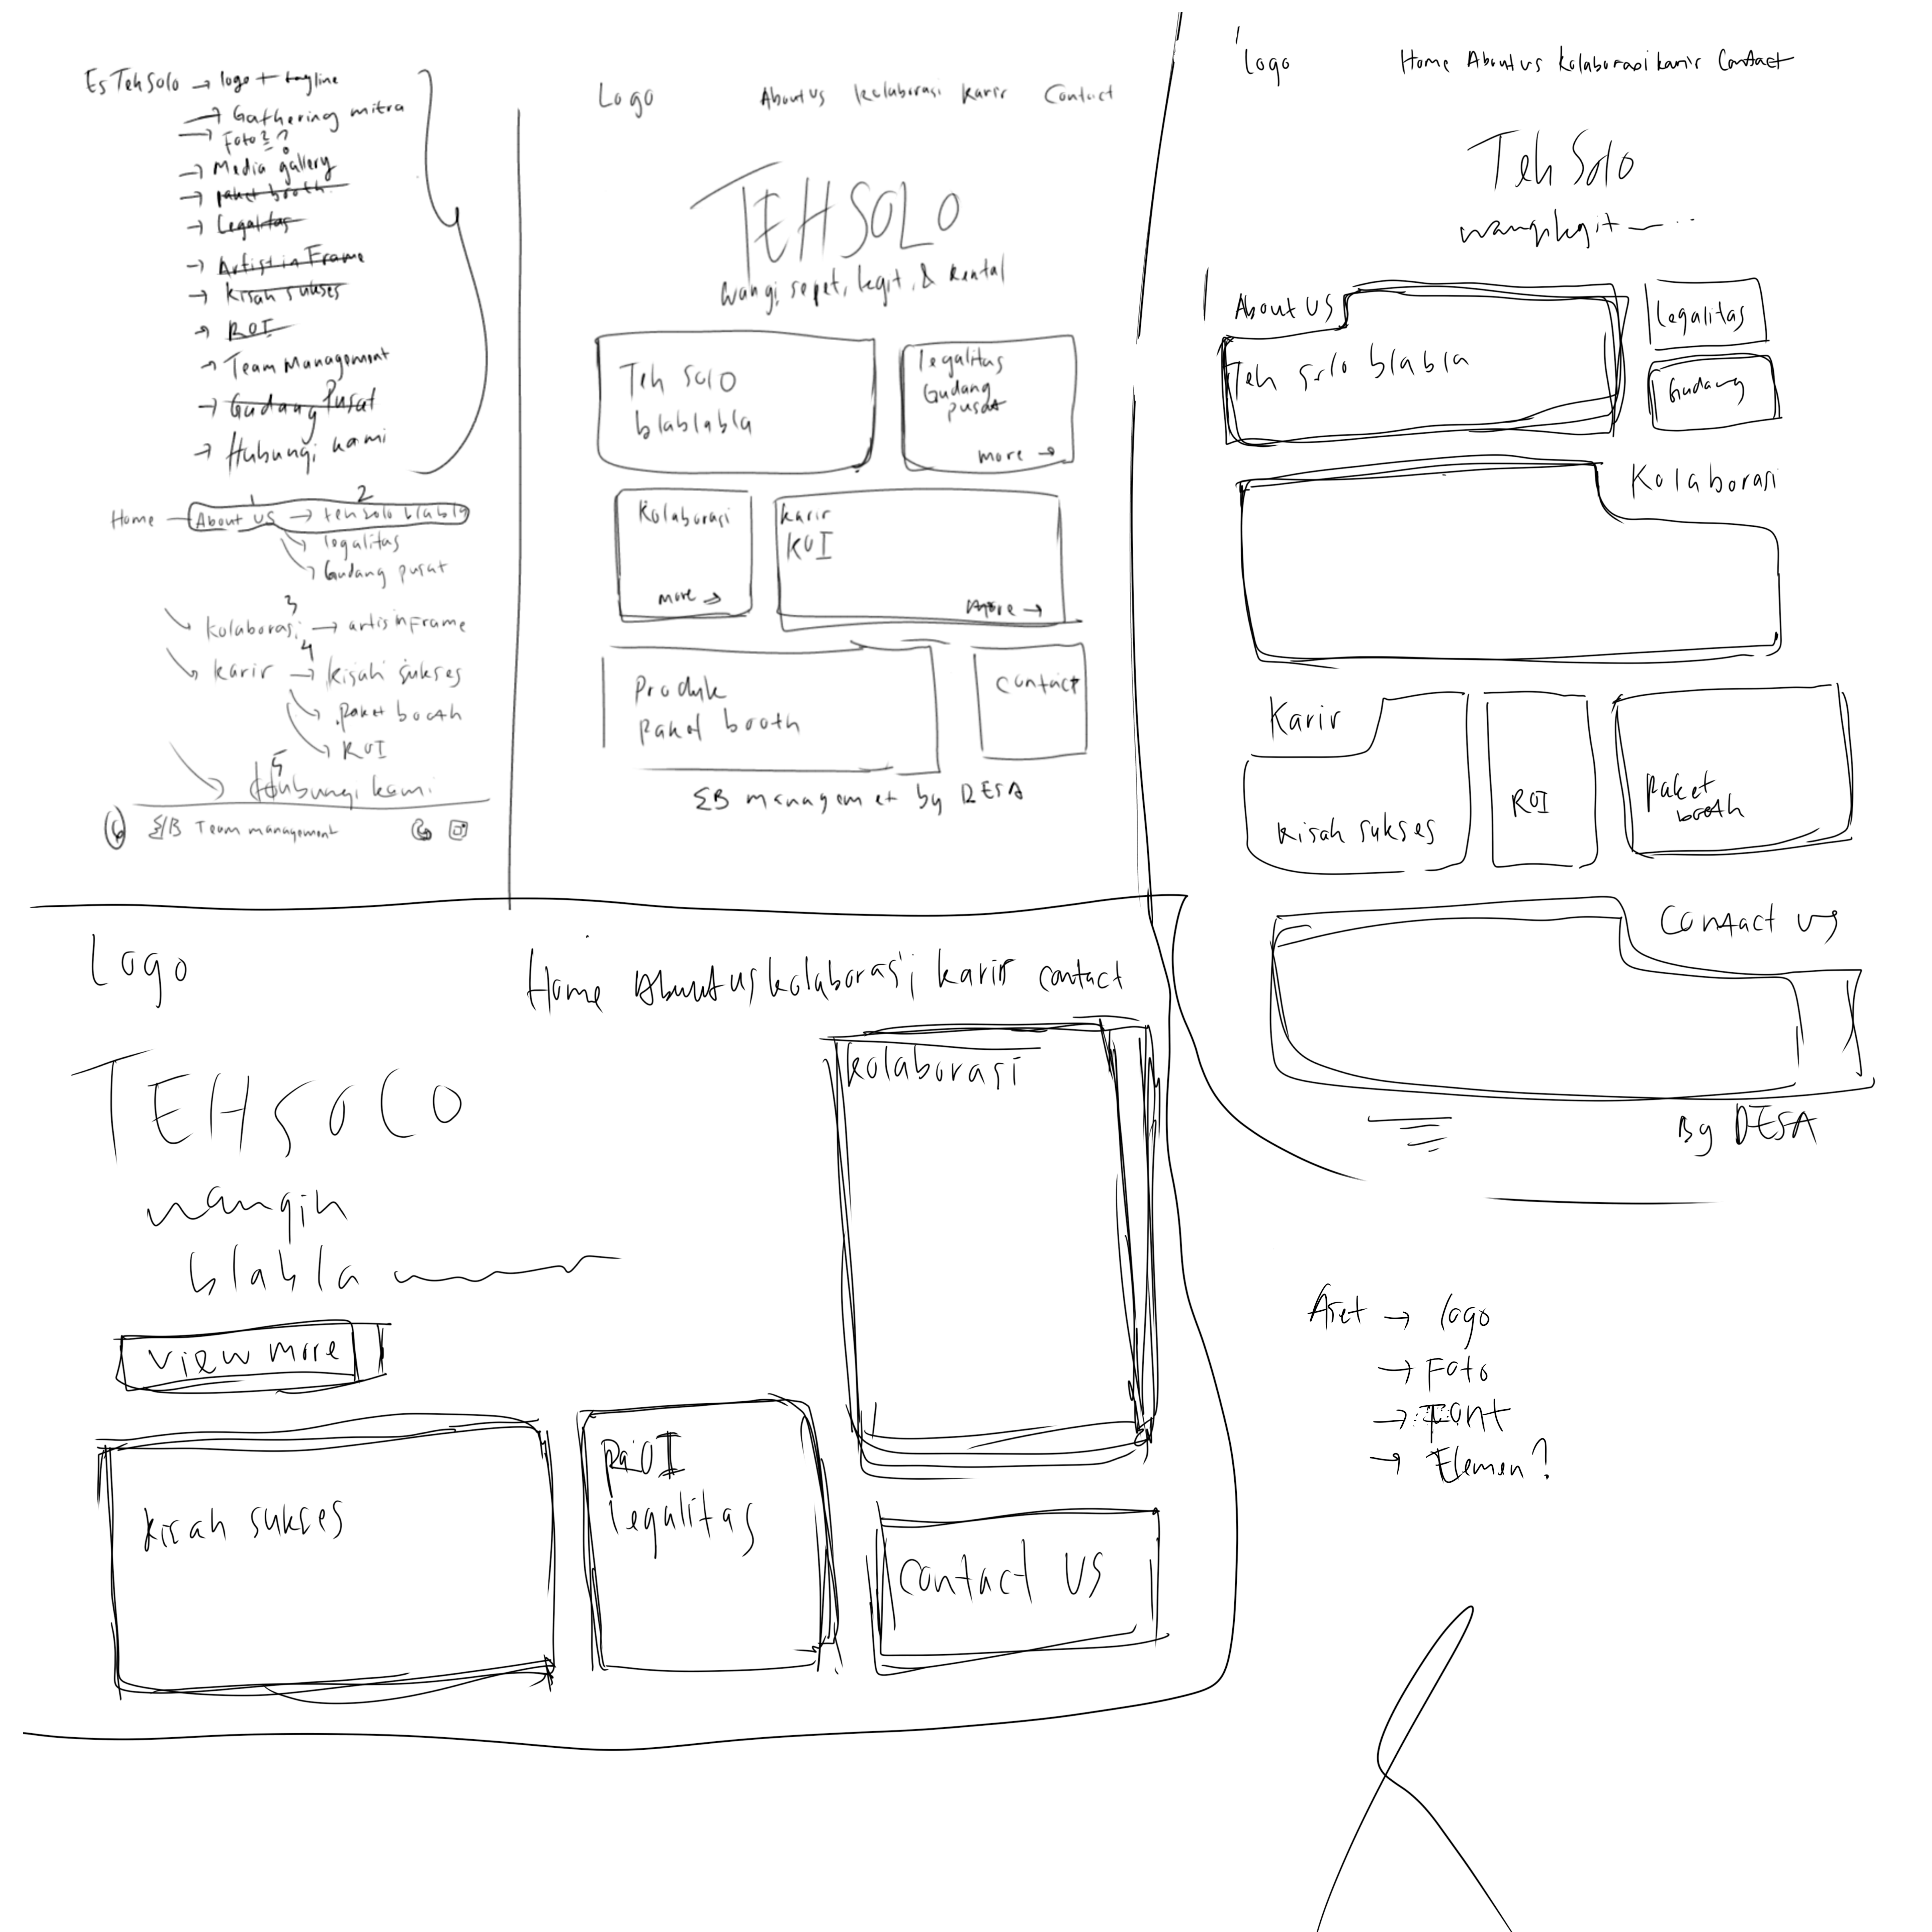 Es Teh Solo → logo + tagline
→ Gathering mitra
→ Foto2?
→ Media gallery
→ paket booth
→ Legalitas
→ Artist in Frame
→ Kisah sukses
→ ROI
→ Team Management
→ Gudang Pusat
→ Hubungi kami
1 2
Home About US → teh solo blabla
legalitas
Gudang pusat
3
kolaborasi → artis inFrame
4
karir → kisah sukses
paket booth
ROI
5
Hubungi kami
6 Team management
Logo About Us kolaborasi karir Contact
TEH SOLO
wangi, sepet, legit, & kental
Teh solo
blablabla
legalitas
Gudang
pusat
more →
Kolaborasi
more →
karir
ROI
more →
Produk
paket booth
contact
managemet by DESA
Logo Home About us kolaborasi karir Contact
Teh Solo
wangi legit
About US
Teh solo blabla
legalitas
Gudang
Kolaborasi
Karir
kisah sukses
ROI
paket
booth
Contact us
By DESA
Logo
Home About us kolaborasi karir contact
TEHSOLO
wangih
blabla
view more
kolaborasi
kisah sukses
ROI
legalitas
contact US
Aset → logo
→ Foto
→ Font
→ Elemen?